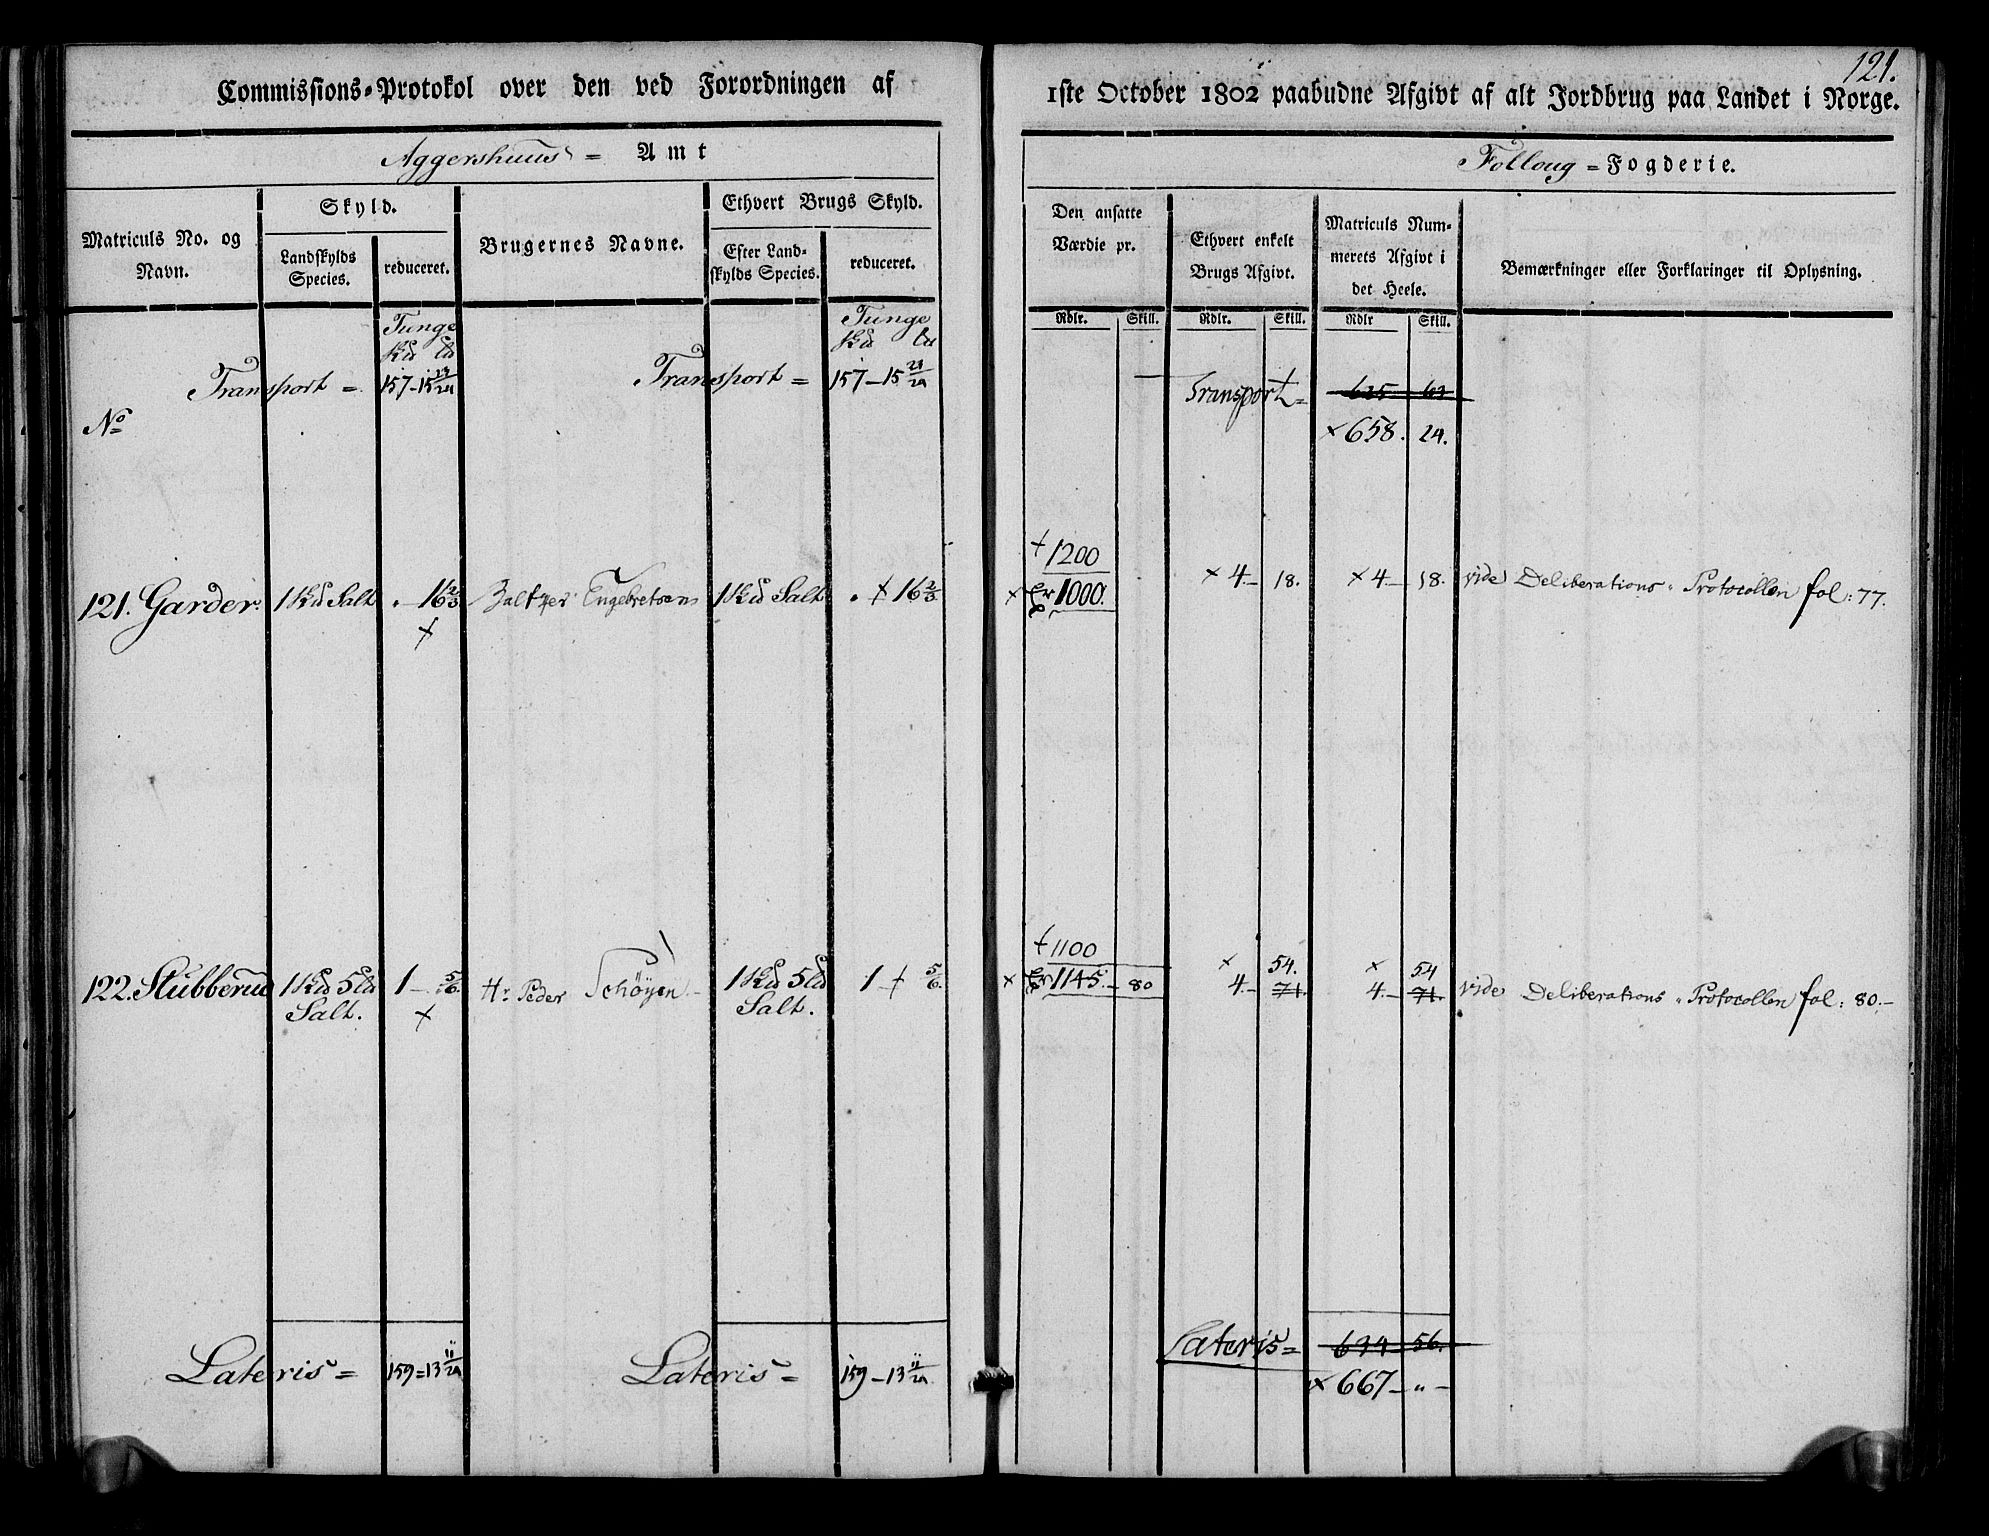 121.
Commissions-Protokol over den ved Forordningen af 1ste October 1802 paabudne Afgivt af alt Jordbrug paa Landet i Norge.
Aggershuus = Amt
Folloug = Fogderie.
Matriculs No. og Navn.
Skyld.
Landskylds Species.
reduceret.
Brugernes Navne.
Ethvert Brugs Skyld.
Efter Landskylds Species.
reduceret.
Den ansatte Værdie pr.
Ethvert enkelt Brugs Afgivt.
Matriculs Nummerets Afgivt i det Heele.
Bemærkninger eller Forklaringer til Oplysning.
Rdlr. Skill. Rdlr. Skill. Rdlr Skill.
Tunge Tunge
Skd Ld Skd Ld
Transport = 157-15 23/24 Transport = 157-15 23/24 Transport = 625 62
No
× 658. 24.
+ 1200
121. Garder. 1 Skd Salt . 16 2/3 Engebretsen 1 Skd Salt . + 16 2/3 × 1000. × 4.- 18. × 4.- 18. vide Deliberations-Protocollen fol: 77.
+
+ 1100 × 54. × 54
122. Stubberud 1 Skd 5 Ld Salt. 1 - 5/6. Hr Peder Schöyen 1 Skd 5 Ld Salt. 1 + 5/6. × 1145.- 80 4.- 71. 4.- 71. vide Deliberations-Protocollen fol: 80.-
+
Lateris = 159=13 11/24 Lateris = 159-13 11/24 Lateris = 634 56.
× 667 - " -